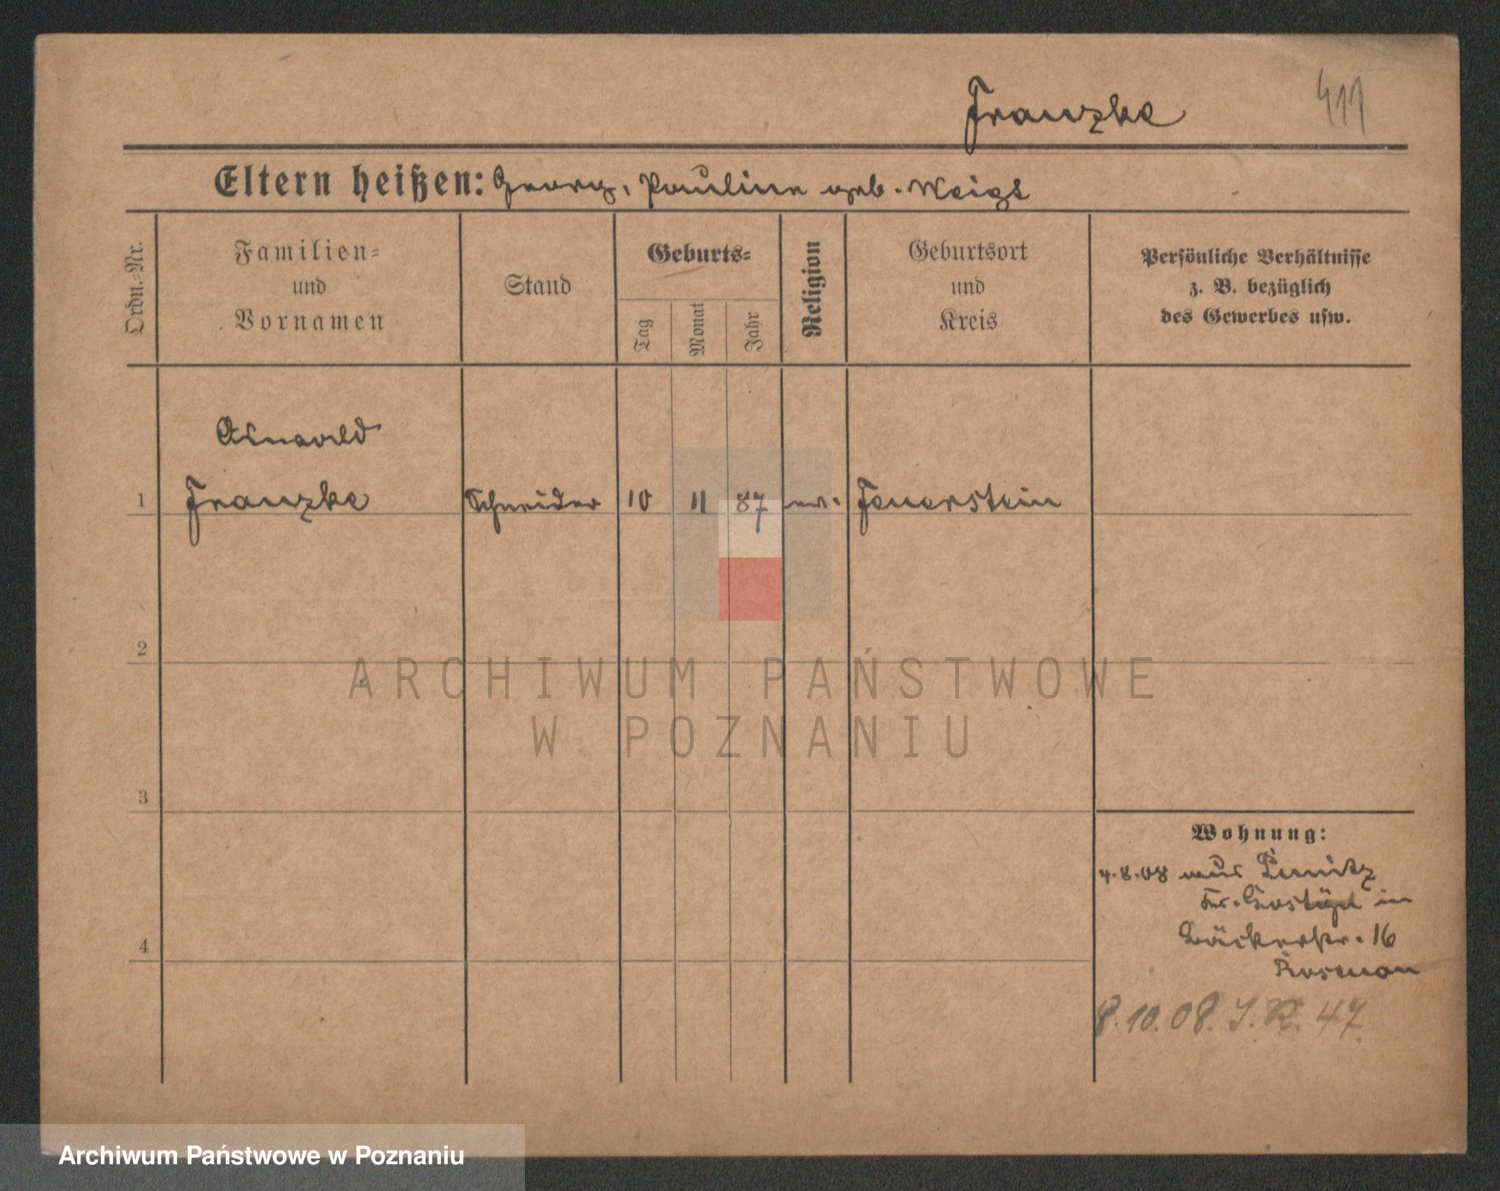 Franzke
411
Eltern heißen: Georg, Pauline geb. Weigt
Ordn.-Nr.
Familien-
und
Vornamen
Stand
Geburts-
Tag
Monat
Jahr
Religion
Geburtsort
und
Kreis
Persönliche Verhältnisse
z. B. bezüglich
des Gewerbes usw.
1
Franzke
Schneider
10
11
87
ev.
Feuerstein
2
ARCHIWUM PAŃSTWOWE
W POZNANIU
3
Wohnung:
4.8.08 aus
Kr. Gostyn in
Bäckerstr. 16
4
8.10.08. I.R. 47
Archiwum Państwowe w Poznaniu